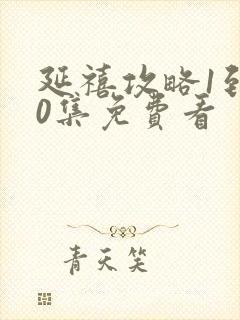 延禧攻略1到
0集免費看
青天笑